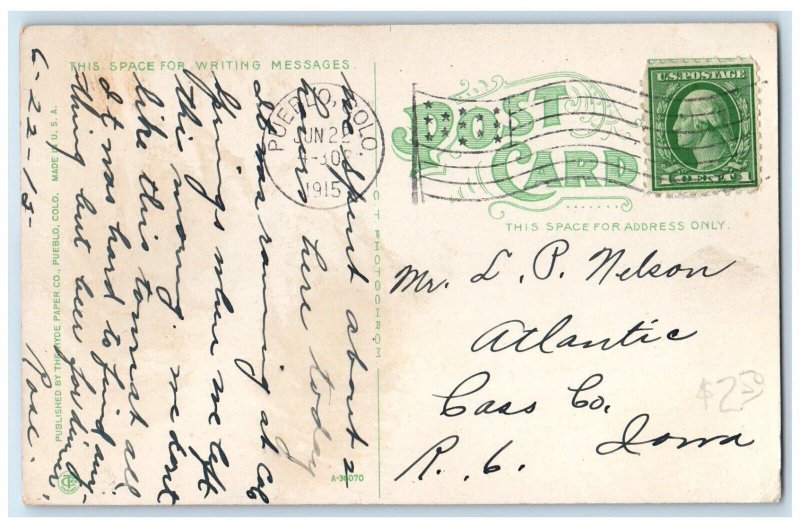 THIS SPACE FOR WRITING MESSAGES.
POST
CARD
THIS SPACE FOR ADDRESS ONLY.
U.S. POSTAGE
1 CENT 1
PUEBLO, COLO.
JUN 22
4-30P
1915
Mr. L. P. Nelson
Atlantic
Cass Co.
R. 6. Iowa
$2
we spent about 2
hours here today
It was raining at Col
Springs when we left
this morning. we dont
like this town at all
It was hard to find any-
thing but beer for dinner.
Rose.
6-22-15-
PUBLISHED BY THE HYDE PAPER CO., PUEBLO, COLO. MADE IN U.S.A.
C.T. PHOTOCHROM
A-36070